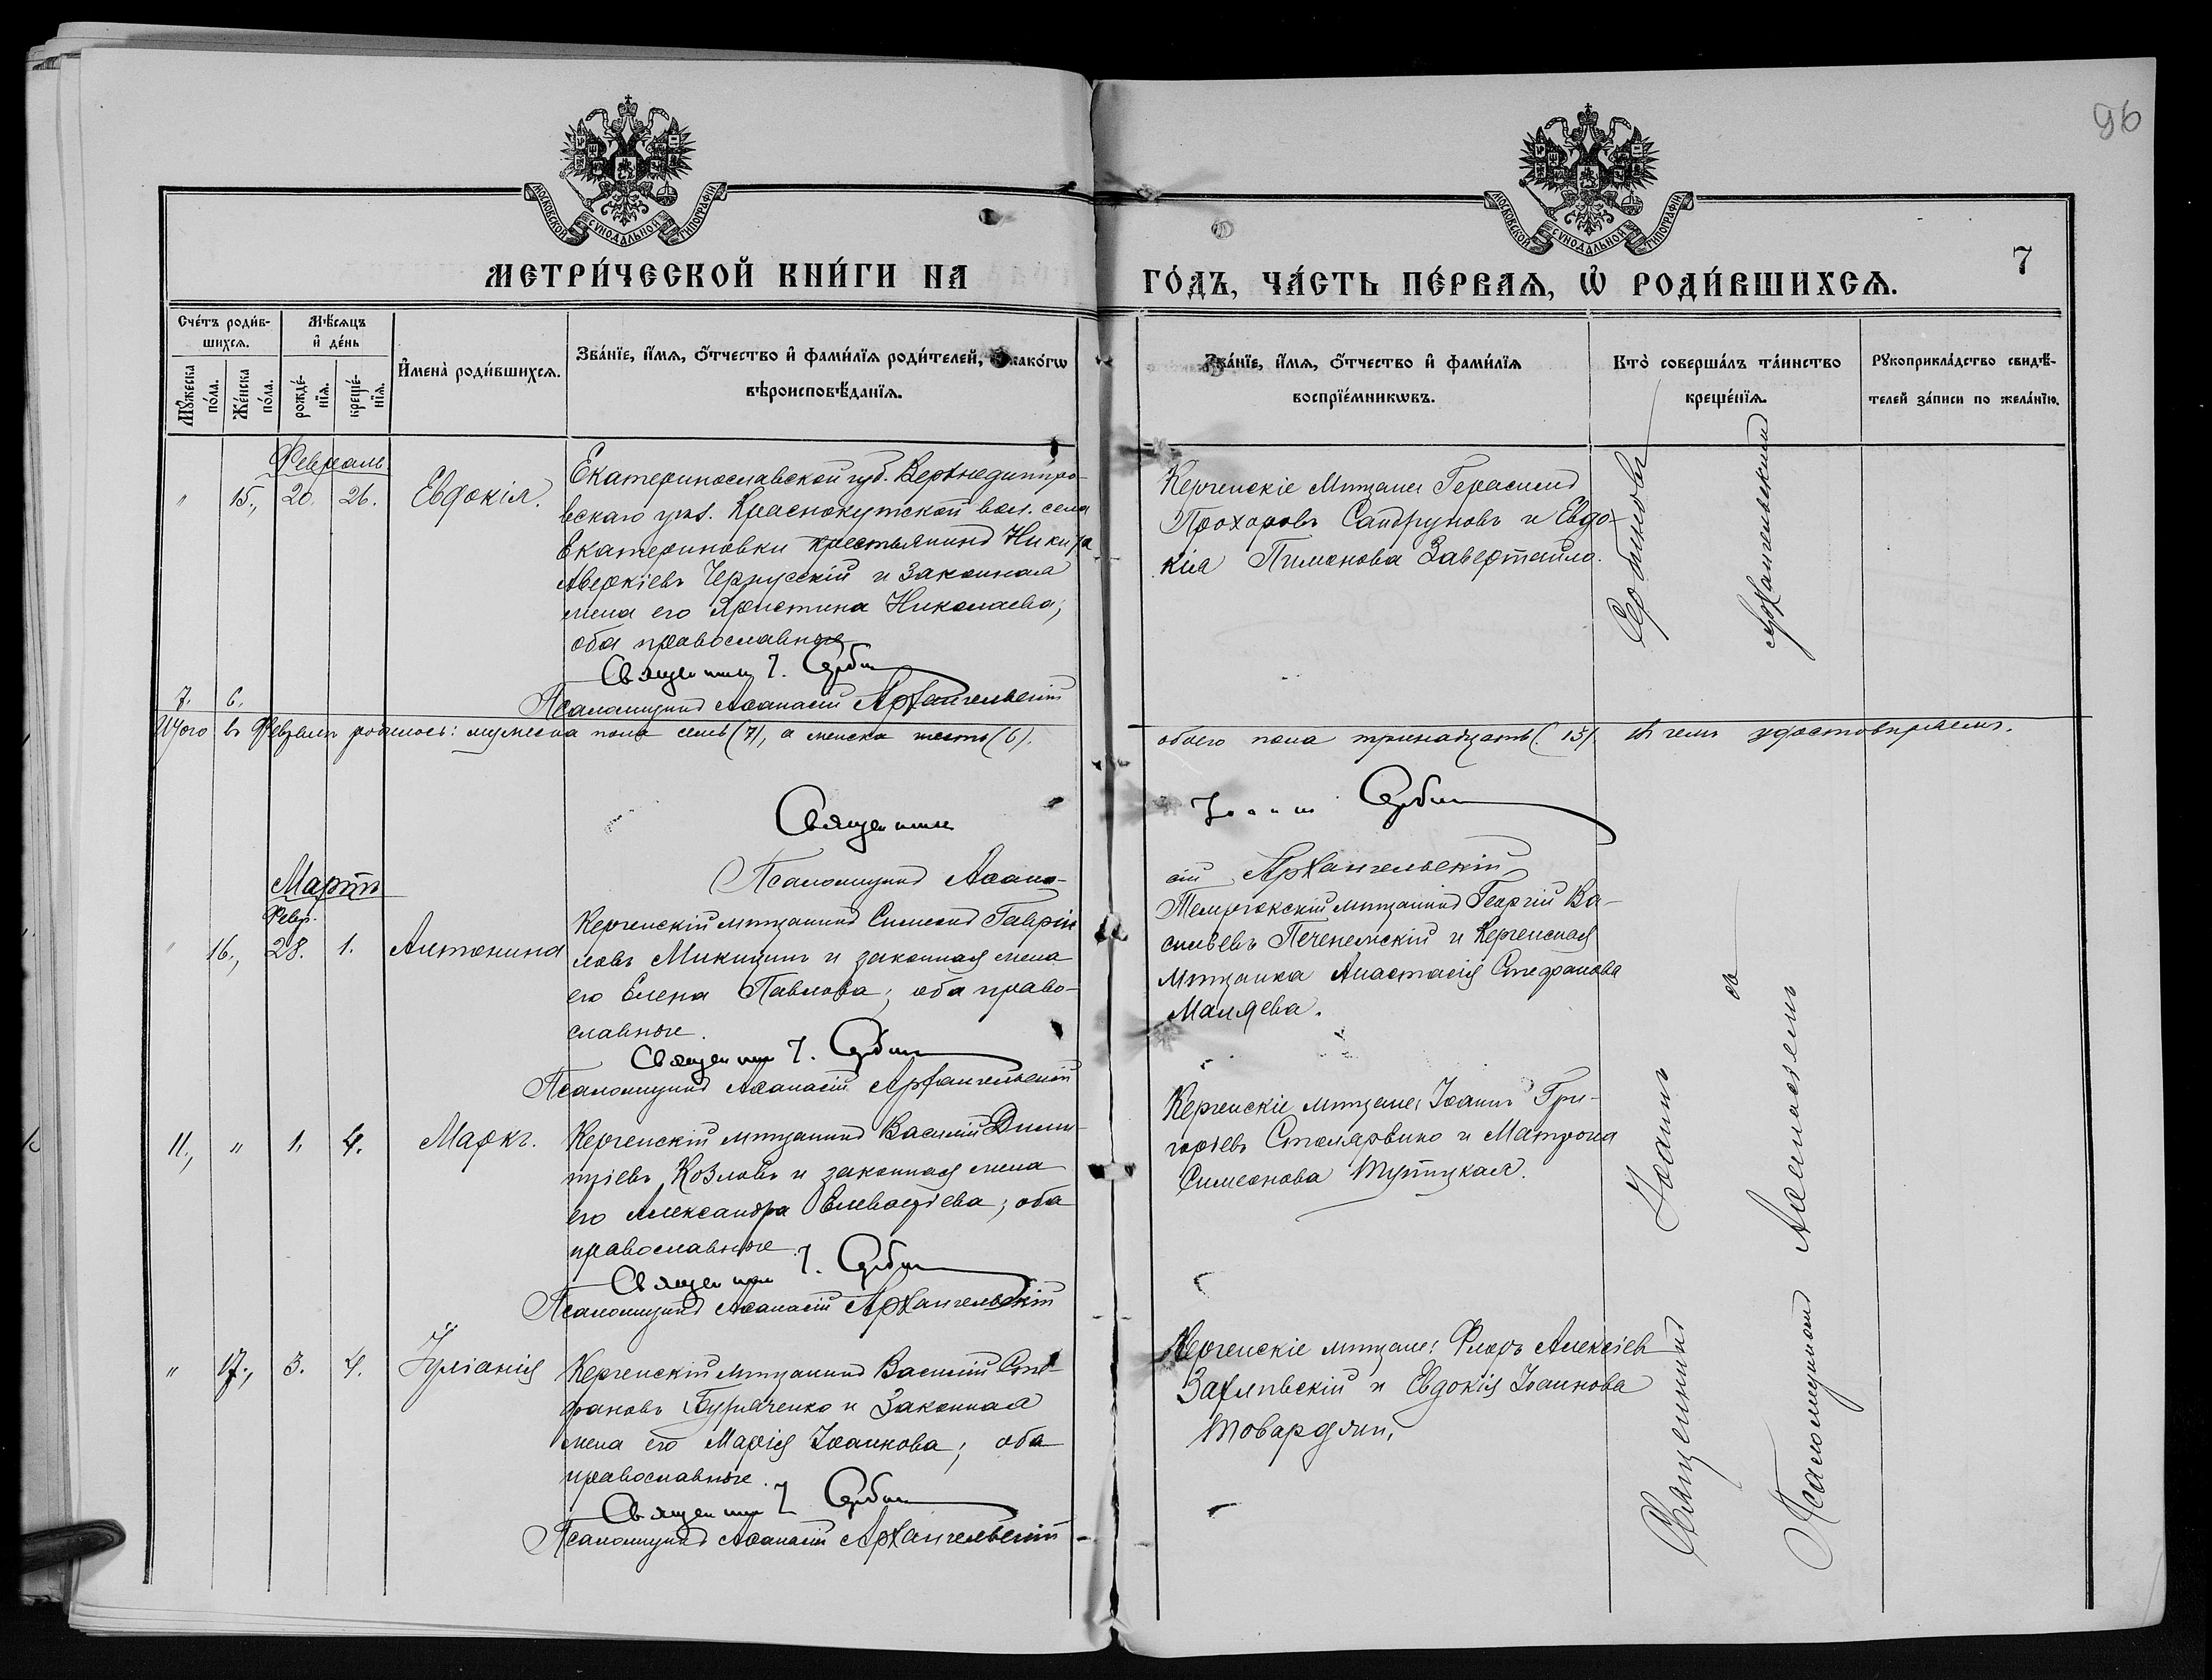 96
МОСКОВСКОЙ СѴНОДАЛЬНОЙ ТИПОГРАФІИ
МОСКОВСКОЙ СѴНОДАЛЬНОЙ ТИПОГРАФІИ
7
МЕТРИ́ЧЕСКОЙ КНИ́ГИ НА ГО́ДЪ, ЧА́СТЬ ПЕ́РВАЯ, Ѡ РОДИ́ВШИХСЯ.
Сче́тъ роди́в-
шихся.
Мꙋ́жеска
по́ла.
Же́нска
по́ла.
Мѣ́сяцъ
и де́нь
рожде́-
нїя.
креще́-
нїя.
И҆мена̀ роди́вшихся.
Зва́нїе, и҆́мя, ѻ҆́тчество и҆ фами́лїя роди́телей, и҆ како́гѡ
вѣроисповѣ́данїя.
Зва́нїе, и҆́мя, ѻ҆́тчество и҆ фами́лїя
воспрїе́мникѡвъ.
Кто̀ соверша́лъ та́инство
креще́нїя.
Рꙋкоприкла́дство свидѣ́-
телей за́писи по жела́нїю.
Февраль
" 15., 20. 26. Евдокія.
Екатеринославской губ. Верхнеднипро-
вскаго уѣз. Краснокутской вол. села
Екатериновки крестьянинъ Никита
Аверкіевъ Черрусскій и законная
жена его Христина Николаева;
оба православные
Священникъ І. Сербиновъ
Псаломщикъ Аѳанасій Архангельскій
Керченскіе мѣщане: Герасимъ
Прохоровъ Сапдруновъ и Евдо-
кія Пименова Завертайло.
7. 6.
Итого въ Февралѣ родилось: мужеска пола семь (7), а женска шесть (6).
обоего пола тринадцать (13). Въ чемъ удостовѣряемъ.
Священникъ
Іоаннъ Сербиновъ
Псаломщикъ Аѳана-
сій Архангельскій
Мартъ
Февр.
" 16., 28. 1. Антонина
Керченскій мѣщанинъ Симеонъ Гаврiи-
ловъ Микицинъ и законная жена
его Елена Павлова; оба право-
славные.
Священникъ І. Сербиновъ
Псаломщикъ Аѳанасій Архангельскій
Темрюкскій мѣщанинъ Георгій Ва-
сильевъ Печенежскій и Керченская
мѣщанка Анастасія Стефанова
Маляева.
11., " 1. 4. Маркъ.
Керченскій мѣщанинъ Василій Дими-
тріевъ Козловъ и законная жена
его Александра Елевферіева; оба
православные.
Священникъ І. Сербиновъ
Псаломщикъ Аѳанасій Архангельскій
Керченскіе мѣщане: Іоаннъ Гри-
горьевъ и Матрона
Симеонова Тупицкая.
" 17., 3. 4. Іуліанія
Керченскій мѣщанинъ Василій Сте-
фановъ Бурлаченко и законная
жена его Марія Іоаннова; оба
православные.
Священникъ І. Сербиновъ
Псаломщикъ Аѳанасій Архангельскій
Керченскіе мѣщане: Флоръ Алексіевъ
и Евдокія Іоаннова
Священникъ Іоаннъ Сербиновъ
съ
Псаломщикомъ Аѳанасіемъ Архангельскимъ